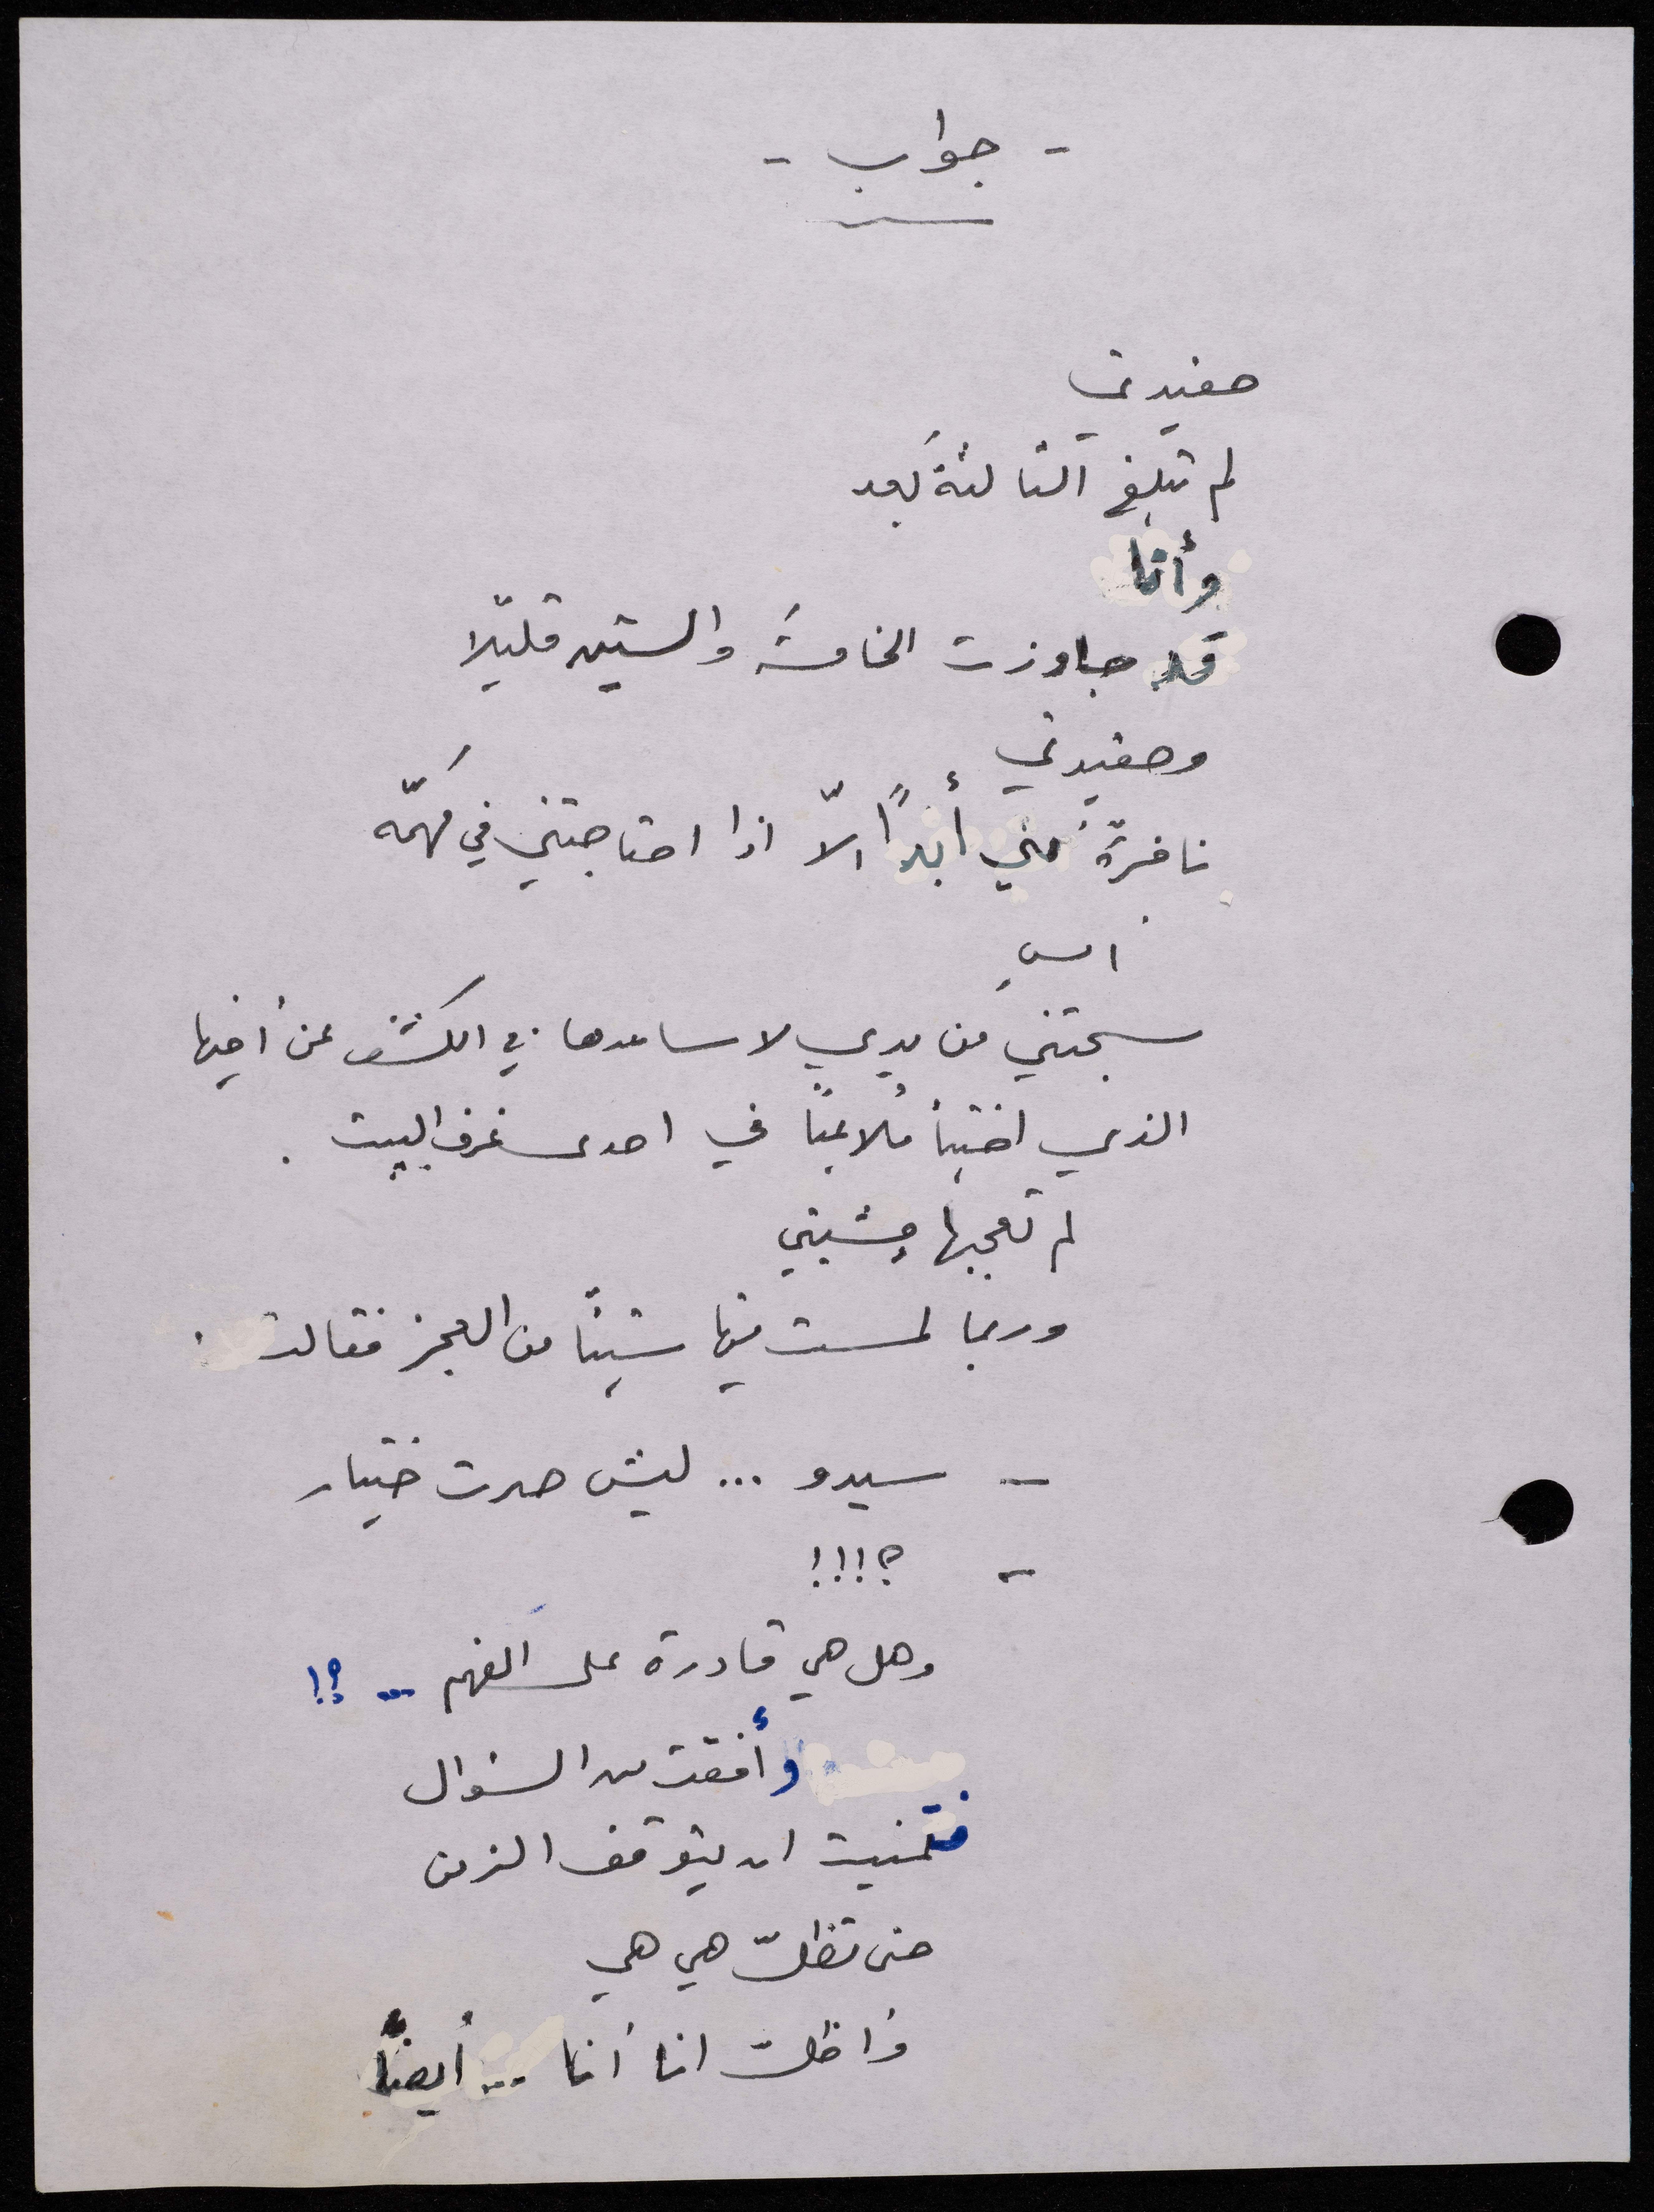 - جواب -
حفيدتي
لم تبلغ الثالثةَ بعد
وأنا
قد جاوزت الخامسة والستين قليلًا
وحفيدتي
نافرةٌ مني أبدًا الّا اذا احتاجتني في مهمّه
امسِ
سحبتني من يدي لاساعدها في الكشف عن أخيها
الذي اختبأ مُلاعبًا في احدى غرف البيت .
لم تعجبها مِشيتي
وربما لمست فيها شيئًا من العجز فقالت :
- سيدو ... ليش صرت ختيار
- ؟!!!
وهل هي قادرة على الفهم ... ؟!
وأفقت من السؤال
فتمنيت ان يتوقف الزمن
حتى تظلّ هي هي
واظلّ انا أنا ... أيضًا